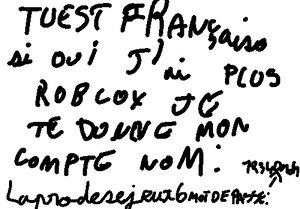 TUEST FRANÇaise
si OUI J'
ai PLUS
ROBLOX JE
TE DONNE MON
COMPTE NOM:
Laprodesejeux6 MOT DE PASSE: